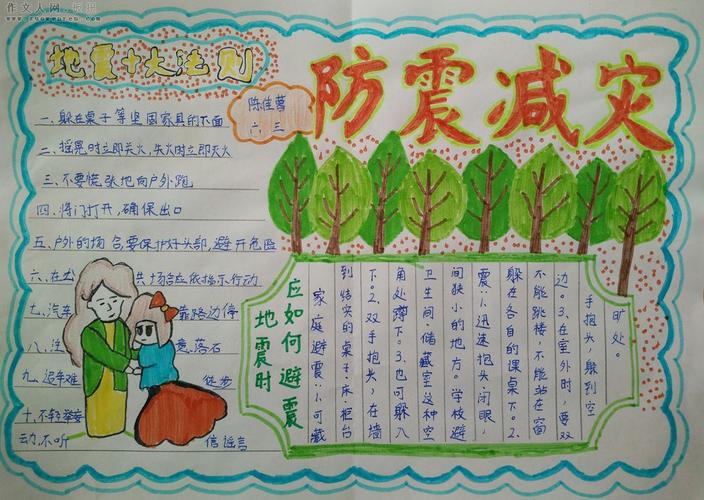 作文人网·板报
www.zzuowenren.com
地震十大法则
防震减灾
陈佳
六 三
一、躲在桌子等坚固家具的下面
二、摇晃时立即关火,失火时立即灭火
三、不要慌张地向户外跑
四、将门打开,确保出口
五、户外的场合,要保护好头部,避开危险
六、在公 共场合应依指示行动
七、汽车 靠路边停
八、注 意、落石
九、避难 徒步
十、不轻举妄
动、不听 信谣言
地震时
应如何避震
家庭避震:1.可藏
到结实的桌子、床、柜台
下。2.双手抱头,在墙
角处蹲下。3.也可躲入
卫生间、储藏室这种空
间狭小的地方。学校避
震:1.迅速抱头闭眼,
躲在各自的课桌下。2.
不能跳楼,不能站在窗
边。3.在室外时,要双
手抱头,躲到空
旷处。